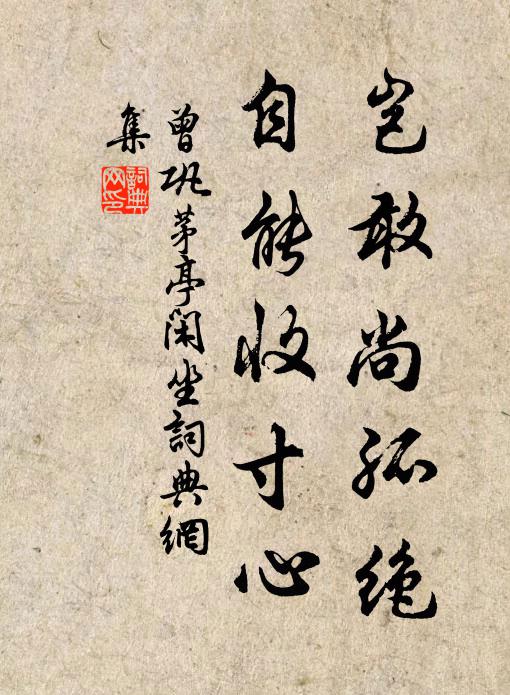 岂敢尚孤绝
自能收寸心
曾巩茅亭闲坐詞典網
集
詞典
网印